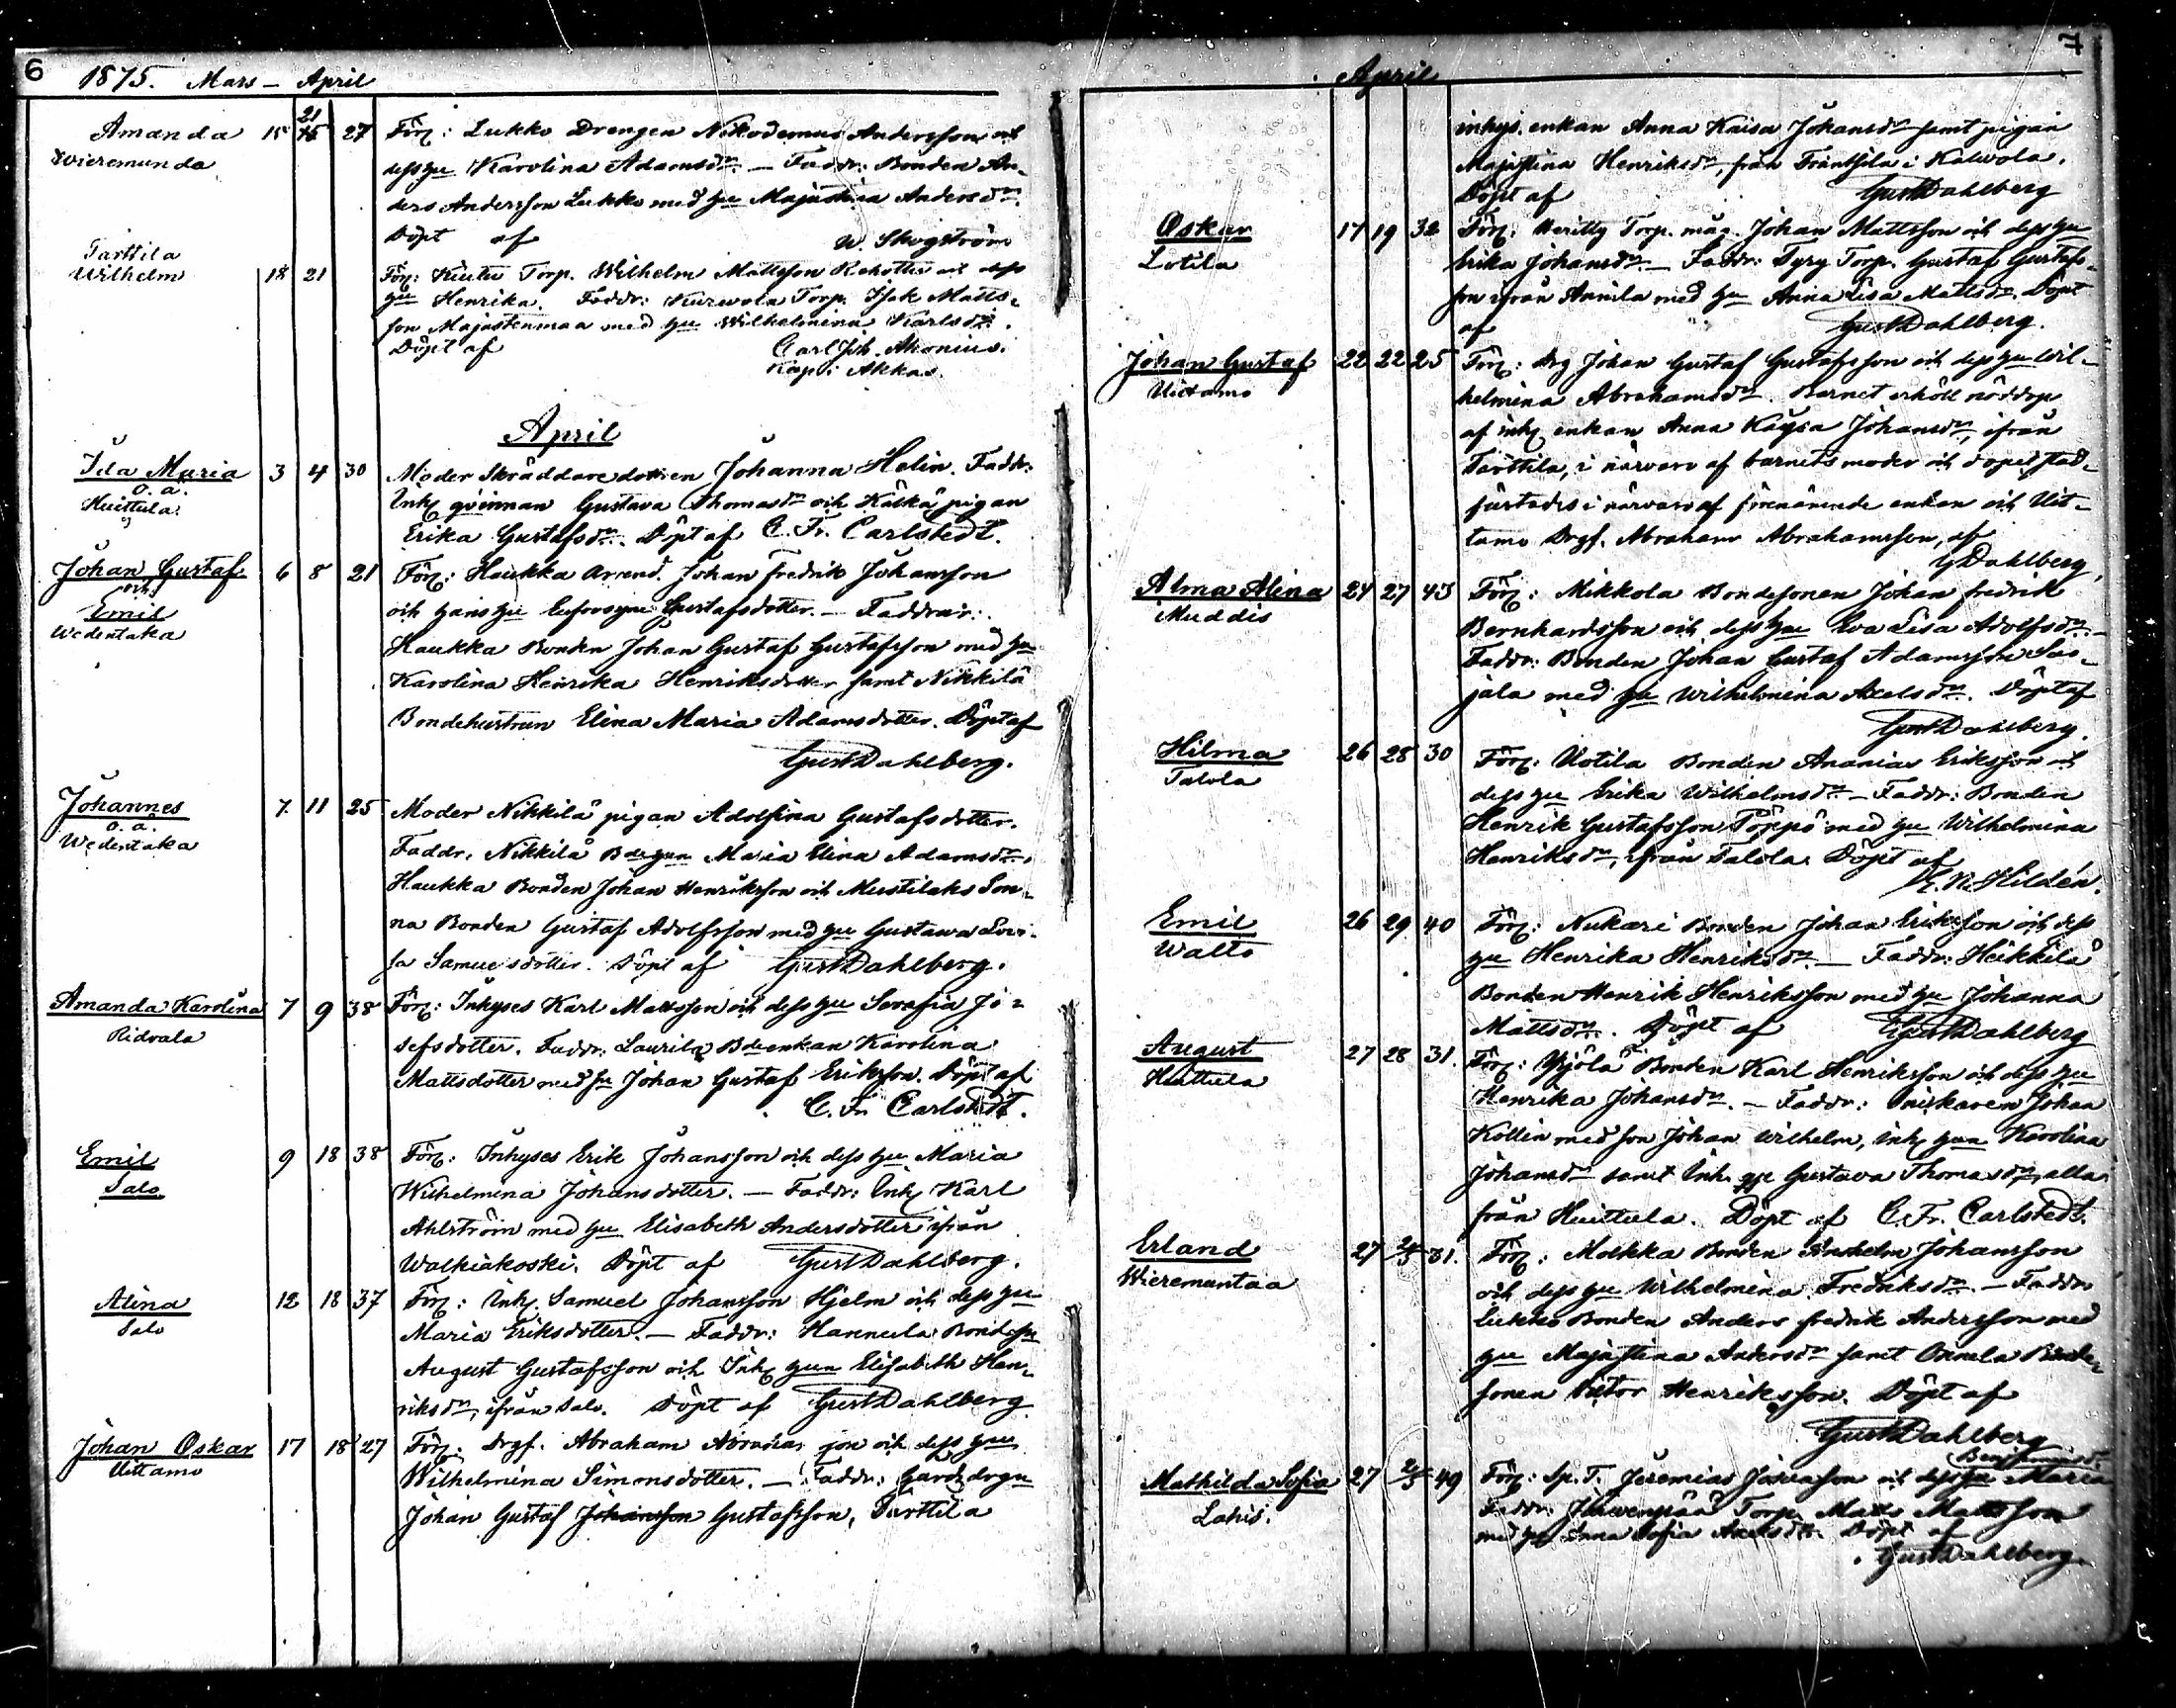 6
1875. Mars – April
Amanda 15 15 21 27 Förs: Lukko Drengen Nikodemus Andersson och
Wieremunda dess hu Karolina Adamsdr. – Faddr: Bonden An-
ders Andersson Lukko med hu Majastina Andersdr.
Döpt af W. Skogström
Tarttila
Wilhelm 18 21 Förs: Kiutu Torp. Wilhelm Mattsson Rehottu och dess
hu Henrika. Faddr: Kurwola Torp. Isak Matts-
son Majastenmaa med hu Wilhelmina Karlsdr.
Döpt af Carl Joh. Akonius.
Kap. i Akkas.
April
Ida Maria 3 4 30 Moder Skräddaredottren Johanna Helin. Faddr:
o. ä. Inhs qvinnan Gustava Thomasdr och Kälkä pigan
Huittula Erika Gustafsdr. Döpt af C. Fr. Carlstedt.
Johan Gustaf 6 8 21 Förs: Haukka Arend. Johan Fredrik Johansson
och och hans hu Eufrosyne Gustafsdotter. – Faddrar:
Emil Haukka Bonden Johan Gustaf Gustafsson med hu
Wedentaka Karolina Henrika Henriksdotter samt Nikkilä
Bondehustrun Elina Maria Adamsdotter. Döpt af
Gust Dahlberg.
Johannes 7 11 25 Moder Nikkilä pigan Adolfina Gustafsdotter.
o. ä. Faddr. Nikkilä Bdehun Maria Elina Adamsdr,
Wedentaka Haukka Bonden Johan Henriksson och Mustilaks Son-
na Bonden Gustaf Adolfsson med hu Gustawa Lovi-
sa Samuelsdotter. Döpt af Gust Dahlberg.
Amanda Karolina 7 9 38 Förs: Inhyses Karl Mattsson och dess hu Serafia Jo-
Ridvala sefsdotter. Faddr: Laurila Bdeenkan Karolina
Mattsdotter med sn Johan Gustaf Eriksson. Döpt af
C. Fr. Carlstedt.
Emil 9 18 38 Förs: Inhyses Erik Johansson och dess hu Maria
Salo Wilhelmina Johansdotter. – Faddr: Inhs Karl
Ahlström med hu Elisabeth Andersdotter ifrån
Walkiakoski. Döpt af Gust Dahlberg.
Alina 12 18 37 Förs: Inhs. Samuel Johansson Hjelm och dess hu
Salo Maria Eriksdotter. – Faddr: Hannula Bondesn
August Gustafsson och Inhs hun Elisabeth Hen-
riksdr, ifrån Salo. Döpt af Gust Dahlberg
Johan Oskar 17 18 27 Förs: Drgf. Abraham Abraha son och dess hu
Uittamo Wilhelmina Simonsdotter. – Faddr: Gårds drgn
Johan Gustaf Johansson Gustafsson, Tarttila
7
April
inhys. enkan Anna Kaisa Johansdr samt pigan
Majastina Henriksdr, från Frantsila i Kalwola.
Döpt af Gust Dahlberg
Oskar 17 19 32 Förs: Heritty Torp. måg. Johan Mattsson och dess hu
Lotila Erika Johansdr. – Faddr: Tyry Torp. Gustaf Gustafs-
son ifrån Annila med hu Anna Lisa Mattsdr. Döpt
af Gust Dahlberg.
Johan Gustaf 22 22 25 Förs: Drg Johan Gustaf Gustafsson och dess hu Wil-
Uittamo helmina Abrahamsdr. Barnet erhöll nöddop
af inhs enkan Anna Kaysa Johansdr, ifrån
Tarttila, i närvaro af barnets moder och dopet stad-
fästades i närvaro af förenämnde enkan och Uit-
tamo Drgf. Abraham Abrahamsson, af
G Dahlberg,
Alma Alina 24 27 43 Förs: Mikkola Bondesonen Johan Fredrik
Muddis Bernhardsson och dess hu Eva Lisa Adolfsdr. –
Faddr: Bonden Johan Gustaf Adamsson Sas-
jala med hu Wilhelmina Axelsdr. Döpt af
Gust Dahlberg.
Hilma 26 28 30 Förs: Uotila Bonden Ananias Eriksson och
Talola dess hu Erika Wilhelmsdr. – Faddr: Bonden
Henrik Gustafsson Pöppö med hu Wilhelmina
Henriksdr, ifrån Talola. Döpt af
K. R. Hildén.
Emil 26 29 40 Förs: Nukari Bonden Johan Eriksson och dess
Walto hu Henrika Henriksdr. – Faddr: Heikkilä
Bonden Henrik Henriksson med hu Johanna
Mattsdr. Döpt af Gust Dahlberg
August 27 28 31. Förs: Yrjölä Bonden Karl Henriksson och dess hu
Huittula Henrika Johansdr. – Faddr: Sniskaren Johan
Kollin med son Johan Wilhelm, inhs hun Karolina
Johansdr samt Inh. qv Gustava Thomasdr, alla
från Huittula. Döpt af C. Fr. Carlstedt.
Erland 27 2/5 31. Förs: Molkka Bonden Anshelm Johansson
Wieremantaa och dess hu Wilhelmina Fredriksdr. – Faddr
Lukko Bonden Anders Fredrik Andersson med
hu Majastina Andersdr samt Onnela Bonde-
sonen Viktor Henriksson. Döpt af
Gust Dahlberg
Mathilda Sofia 27 2/5 49 Förs: Sp. T. Jeremias Josuason och dess hu Maria
Lahis. Faddr: Torp. Matts Mattsson
med hu Anna Sofia Döpt af
Gust Dahlberg.